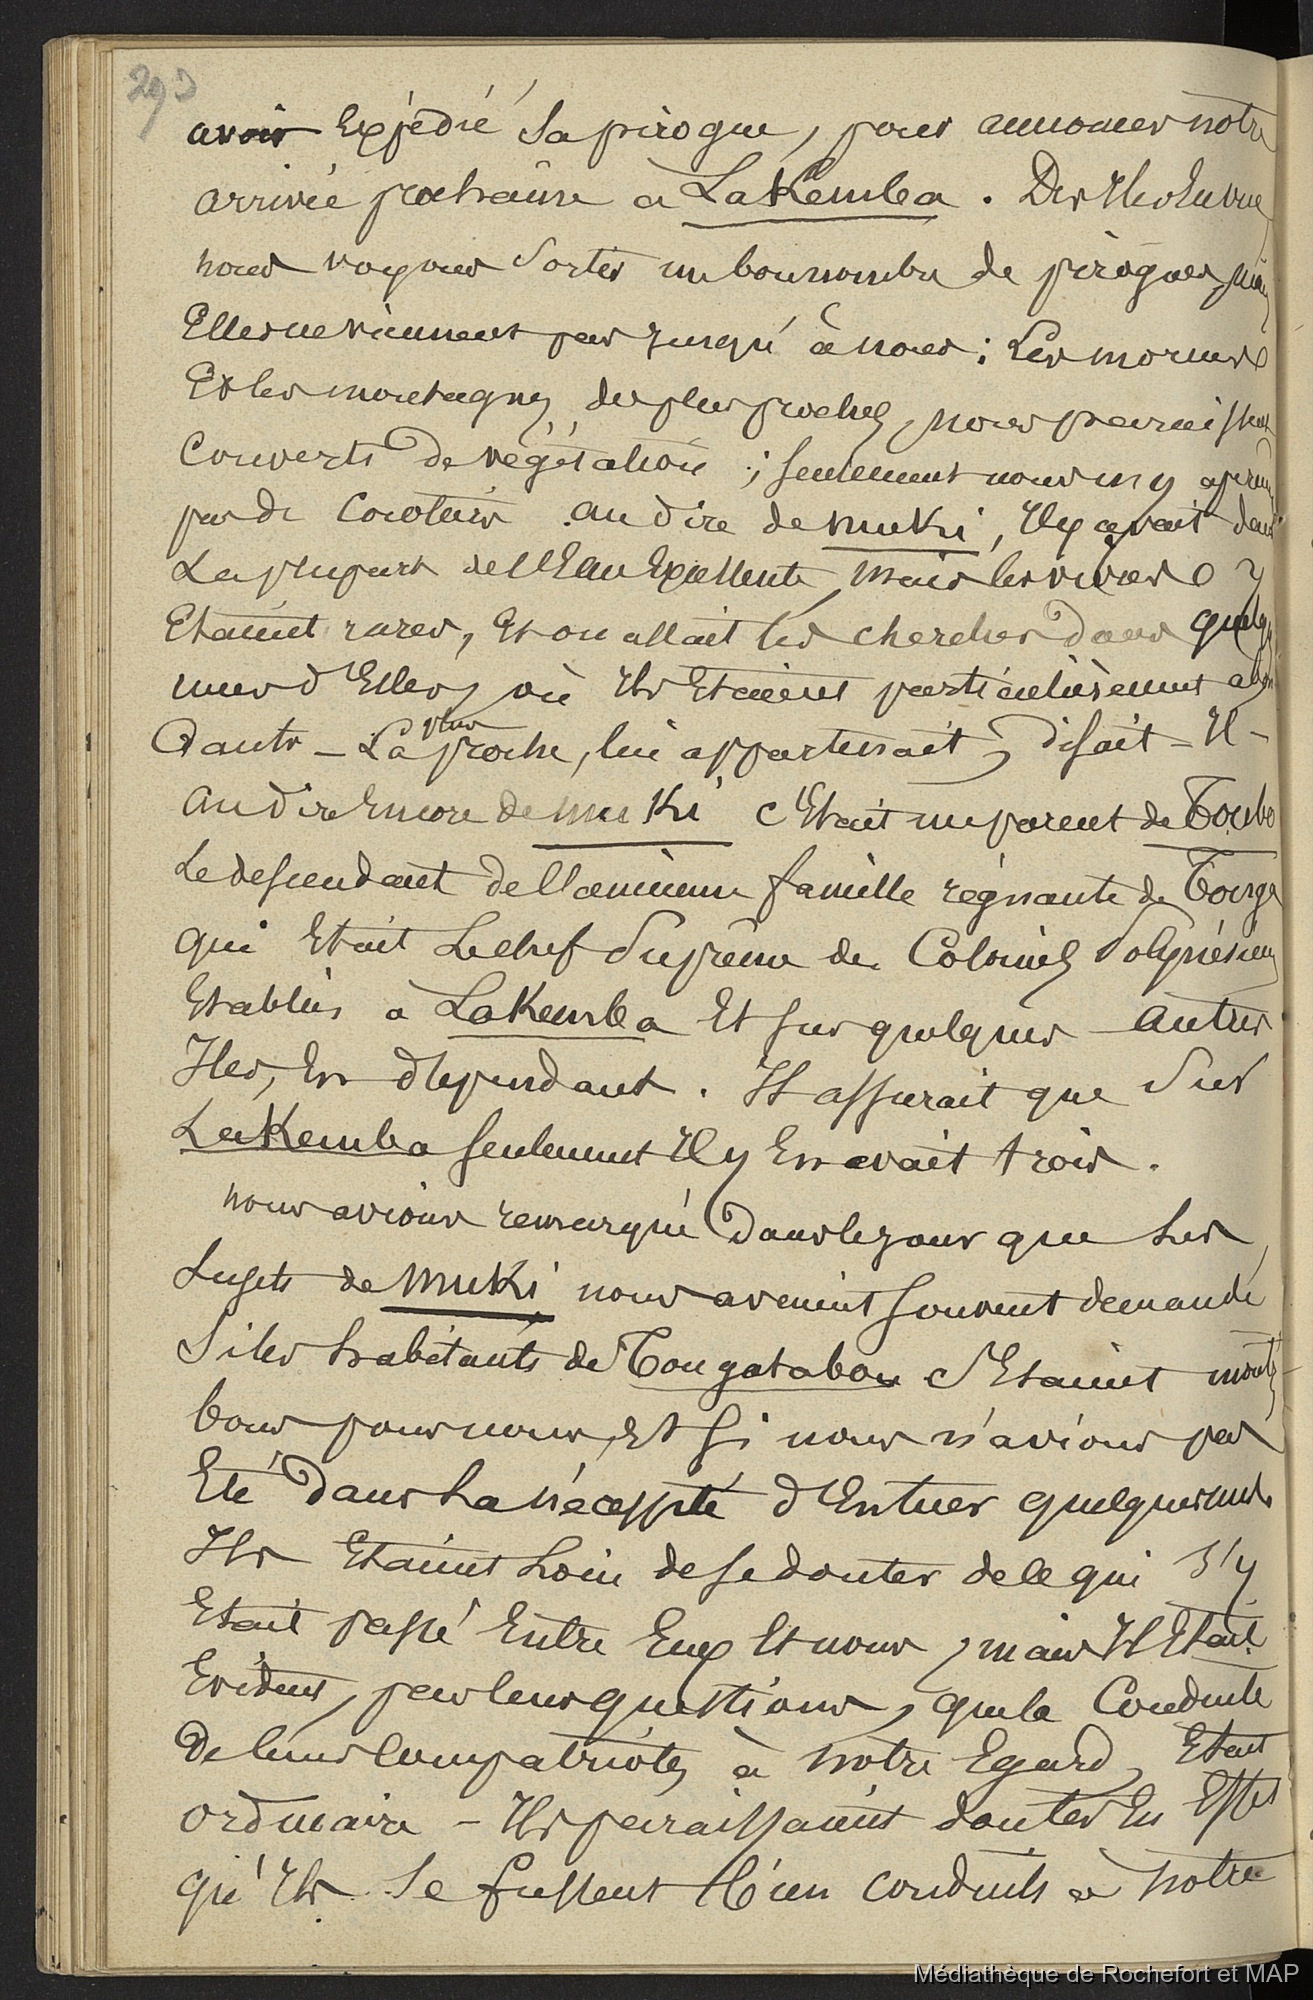 293
avoir Expédié sa pirogue, pour annoncer notre
arrivée prochaine à LaKemba. Des Iles En vue
nous voyons Sortir un bon nombre de pirogues, mais
Elles ne viennent pas jusqu'à nous ; Les mornes
Et les montagnes des plus proches, nous paraissent
Couverts de végétation ; seulement nous n'y
pas de Cocotiers. au dire de muKi, Il y avait dans
La plupart de l'Eau Excellente, mais les vivres y
Etaient rares, Et on allait les chercher dans quelques
unes d'Elles, où Ils Etaient particulièrement abon
dants - La plus proche, lui appartenait, disait-Il -
au dire Encore de muKi c'Etait un parent de Toubo
Le descendant de l'ancienne famille régnante de Tonga
qui Etait Le chef Suprême des Colonies Polynésiennes
Etablies à LaKemba Et sur quelques autres
Iles, En dépendant. Il assurait que Sur
LaKemba seulement Il y En avait trois.
nous avions remarqué dans le jour que Les
Sujets de muKi nous avaient souvent demandé
Si les habitants de Tongatabou s'Etaient montrés
bons pour nous, Et si nous n'avions pas
Eté dans La nécessité d'En tuer quelques uns.
Ils Etaient Loin de se douter de ce qui s'y
Etait passé Entre Eux Et nous, mais Il Etait
Evident, par leurs questions, que la Conduite
de leurs Compatriotes à notre Egard, Etait
ordinaire - Ils paraissaient douter En Effet
qu'Ils se fussent bien conduits à notre
Médiathèque de Rochefort et MAP